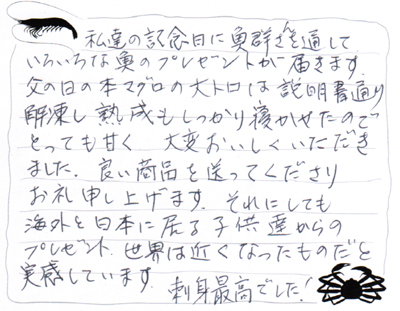 私達の記念日に魚群さを通して
いろいろな魚のプレゼントが届きます.
父の日の本マグロの大トロは説明書通り
解凍し熟成もしっかり寝かせたので
とっても甘く 大変おいしくいただき
ました. 良い商品を送ってくださり
お礼申し上げます. それにしても
海外と日本に居る子供達からの
プレゼント. 世界は近くなったものだと
実感しています. 刺身最高でした!